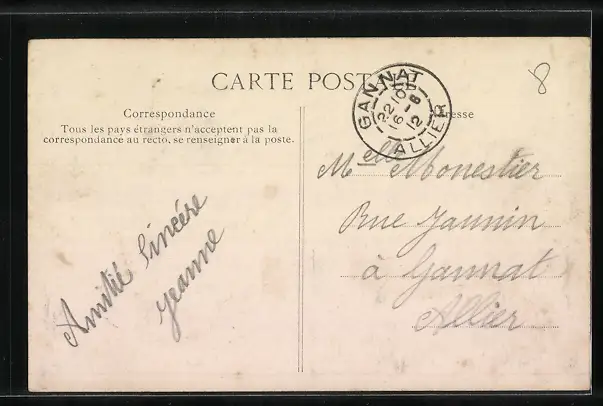 CARTE POSTALE
Correspondance
Tous les pays étrangers n'acceptent pas la
correspondance au recto, se renseigner à la poste.
Amitié Sincère
Jeanne
GANNAT
22 10
16 - 6
12
ALLIER
8
resse
Melle Monestier
Rue Jaunin
à Gannat
Allier